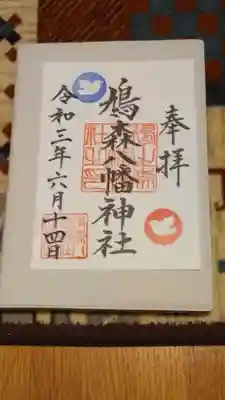 奉拝
鳩森八幡神社
令和三年六月十四日